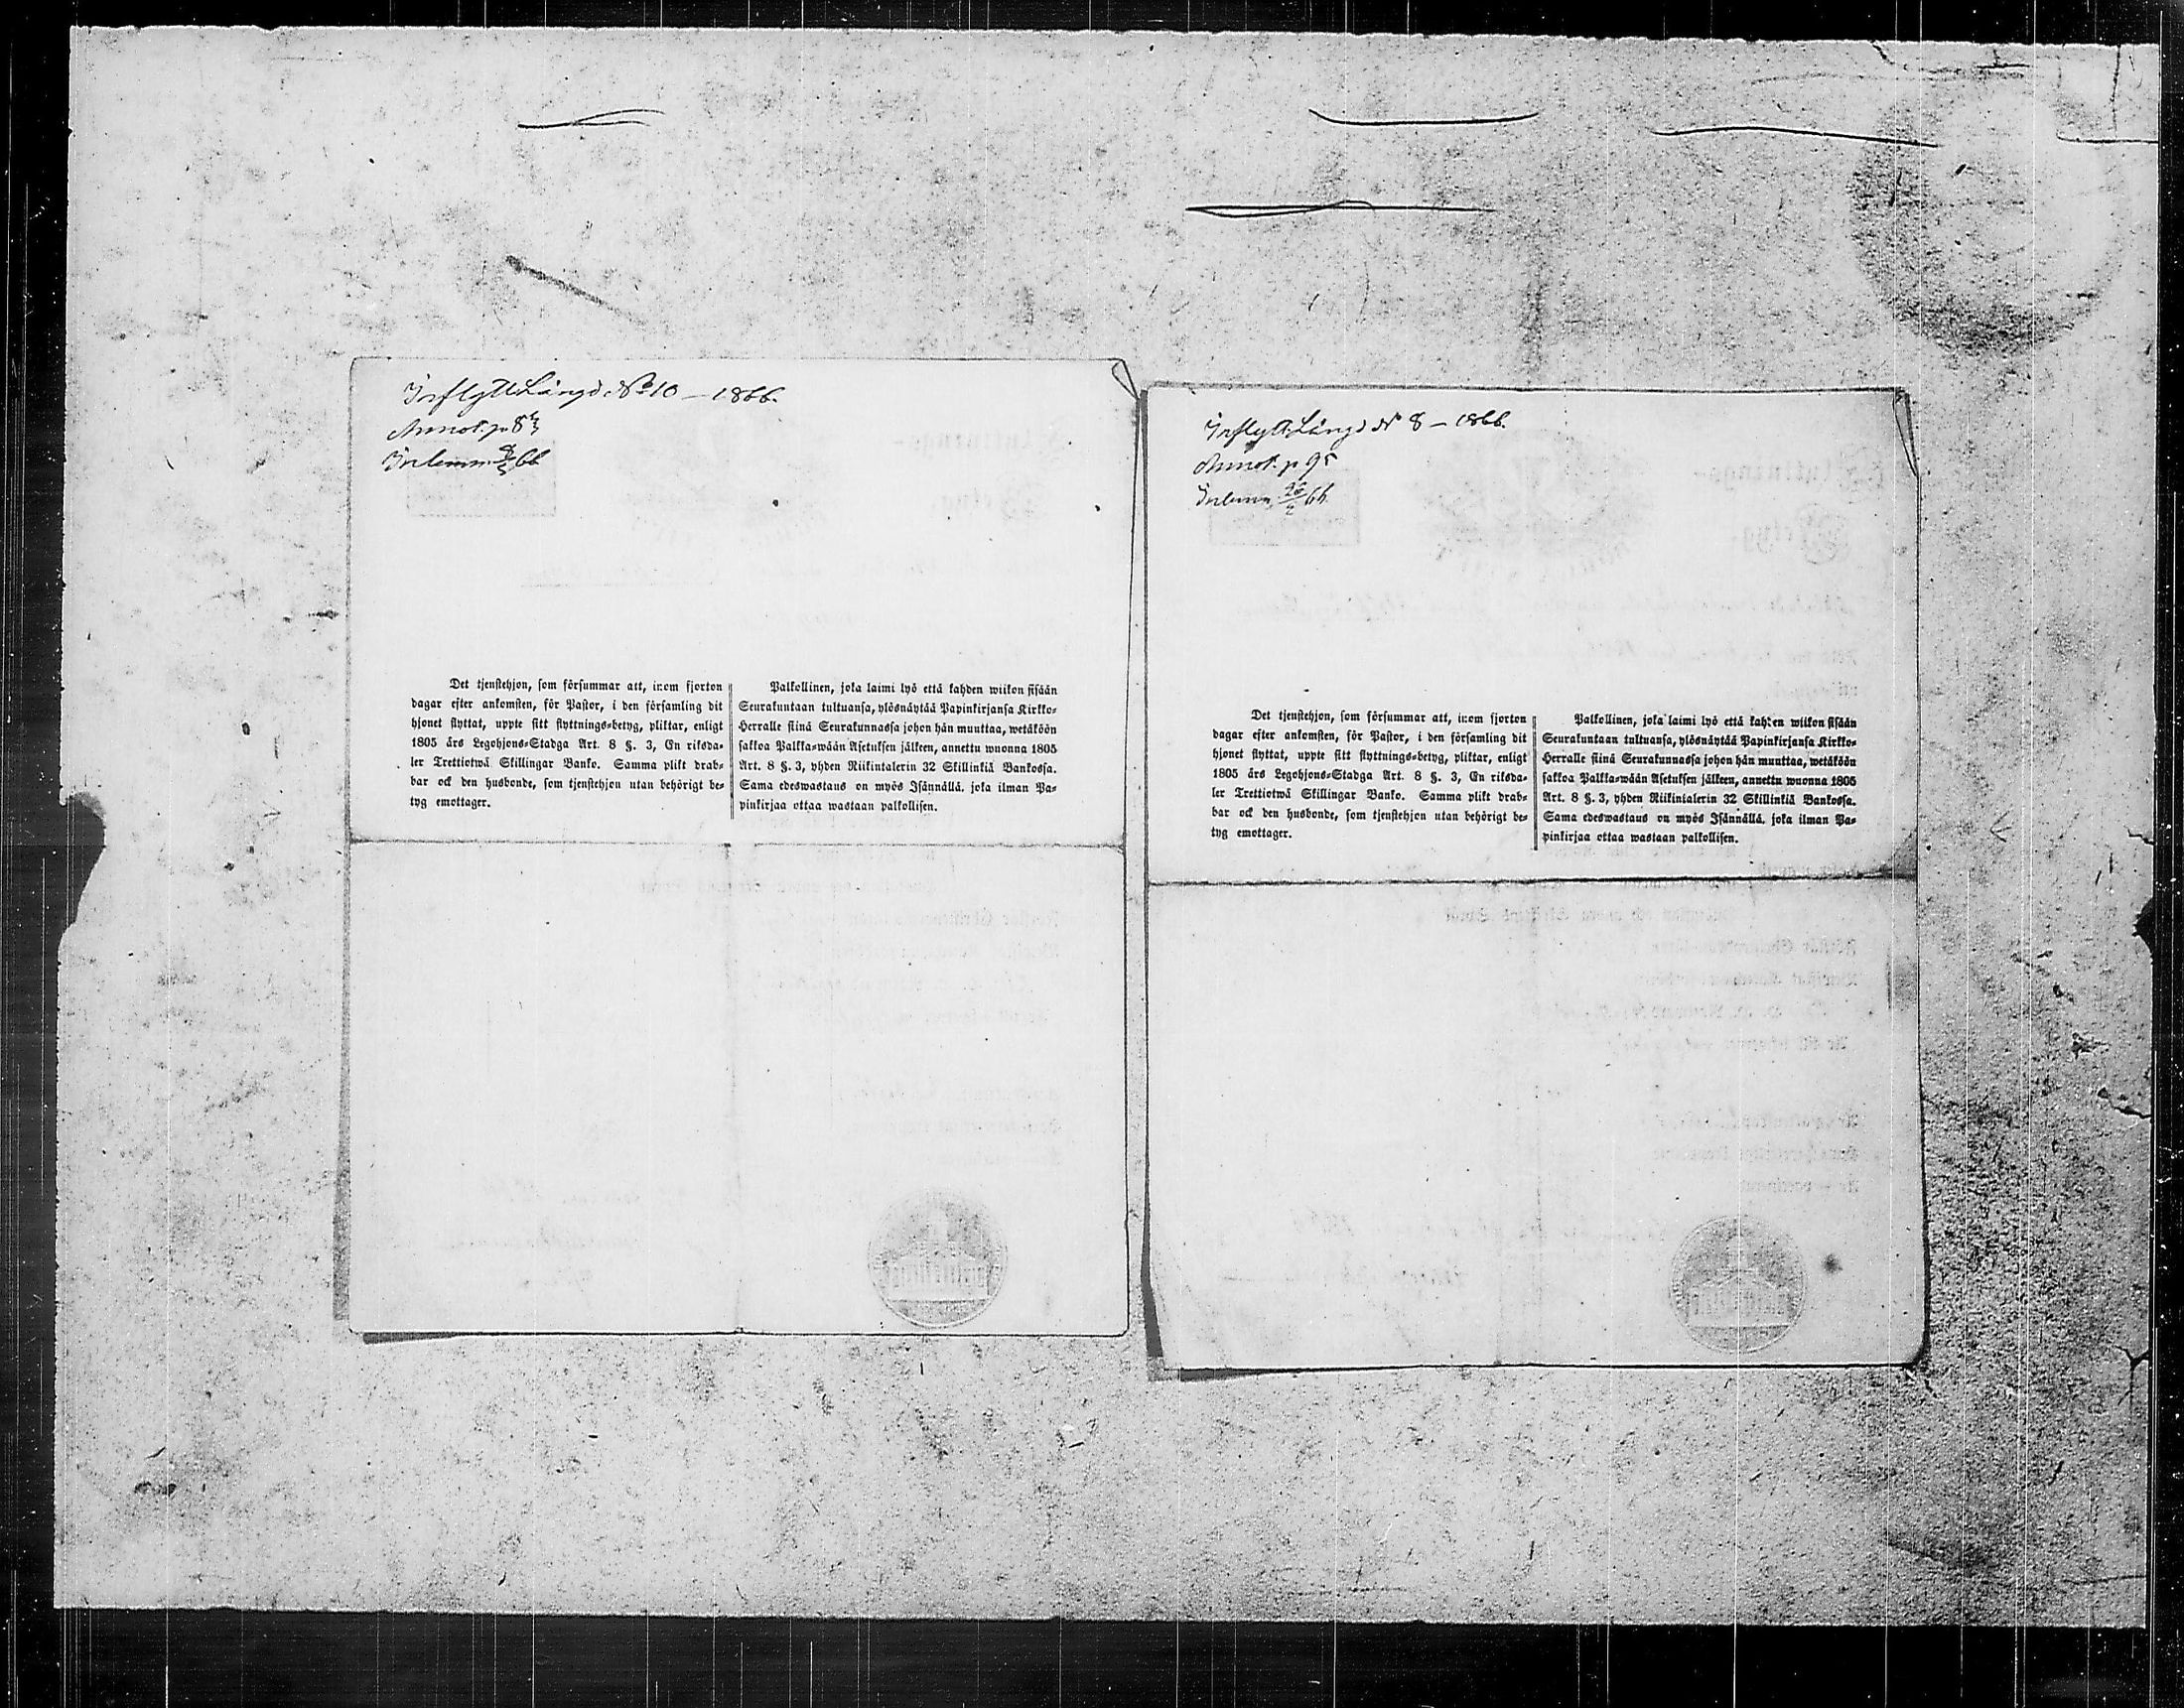 Inflytt.Längd. No 10 – 1866.
Annot. p. 8
Inlemn. 66
Det tjenstehjon, som försummar att, inom fjorton
dagar efter ankomsten, för Pastor, i den församling dit
hjonet flyttat, uppte sitt flyttnings=betyg, pliktar, enligt
1805 års Legohjons=Stadga Art. 8 §. 3, En riksda=
ler Trettiotwå Skillingar Banko. Samma plikt drab=
bar ock den husbonde, som tjenstehjon utan behörigt be=
tyg emottager.
Palkollinen, joka laimi lyö että kahden wiikon sisään
Seurakuntaan tultuansa, ylösnäytää Papinkirjansa Kirkko=
Herralle siinä Seurakunnassa johon hän muuttaa, wetäköön
sakkoa Palkka=wään Asetuksen jälkeen, annettu wuonna 1805
Art. 8 §. 3, yhden Riikintalerin 32 Skillinkiä Bankossa.
Sama edeswastaus on myös Isännällä. joka ilman Pa=
pinkirjaa ottaa wastaan palkollisen.
Inflytt.Längd No 8 – 1866.
Annot. p. 95
Inlemn. 26/2 66.
Det tjenstehjon, som försummar att, inom fjorton
dagar efter ankomsten, för Pastor, i den församling dit
hjonet flyttat, uppte sitt flyttnings=betyg, pliktar, enligt
1805 års Legohjons=Stadga Art. 8 §. 3, En riksda=
ler Trettiotwå Skillingar Banko. Samma plikt drab=
bar ock den husbonde, som tjenstehjon utan behörigt be=
tyg emottager.
Palkollinen, joka laimi lyö että kahden wiikon sisään
Seurakuntaan tultuansa, ylösnäytää Papinkirjansa Kirkko=
Herralle siinä Seurakunnassa johon hän muuttaa, wetäköön
sakkoa Palkka=wään Asetuksen jälkeen, annettu wuonna 1805
Art. 8 §. 3, yhden Riikintalerin 32 Skillinkiä Bankossa.
Sama edeswastaus on myös Isännällä. joka ilman Pa=
pinkirjaa ottaa wastaan palkollisen.